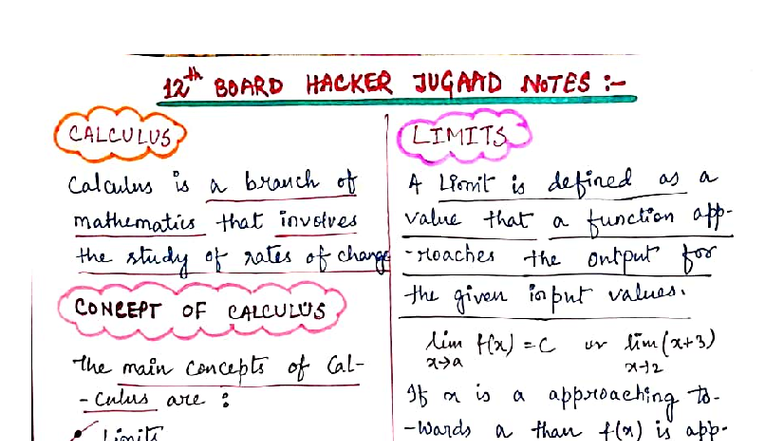 12th BOARD HACKER JUGAAD NOTES :-
CALCULUS
Calculus is a branch of
mathematics that involves
the study of rates of change
CONCEPT OF CALCULUS
The main concepts of Cal-
-culus are :
Limits
LIMITS
A Limit is defined as a
value that a function app-
-roaches the output for
the given input values.
lim f(x) = C or lim (x+3)
x→a x→2
If x is a approaching to-
-wards a than f(x) is app-